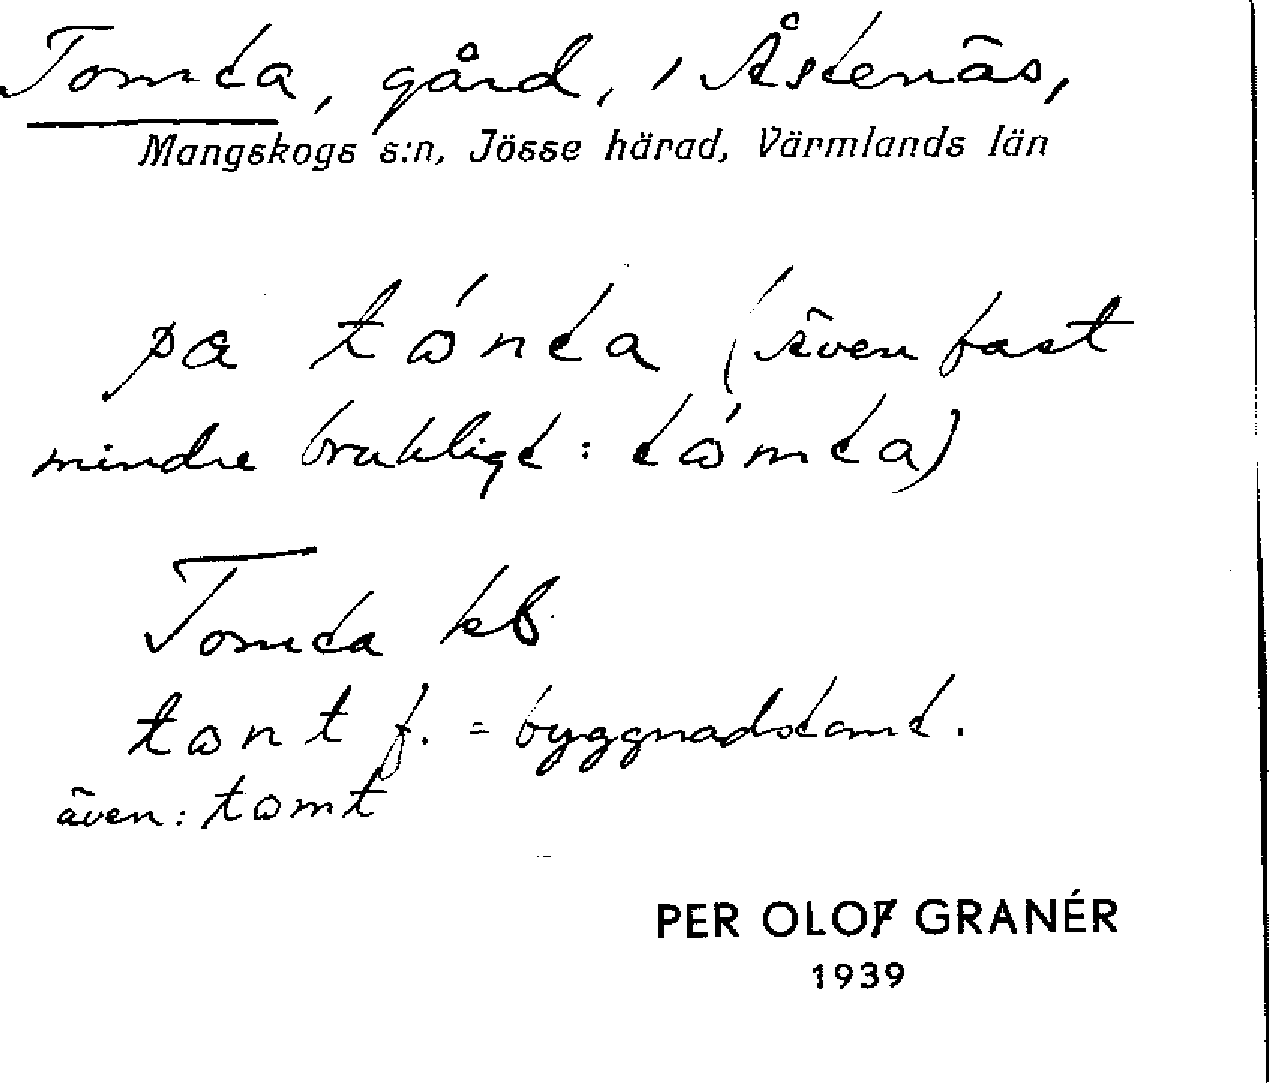 Tomta, gård, i Åstenäs,
Mangskogs s:n, Jösse härad, Värmlands län
pa tɷ́nta (även fast
mindre brukligt: tɷ́mta)
Tomta kb
tɷnt f. = byggnadstomt.
även: tɷmt
PER OLOF GRANÉR
1939